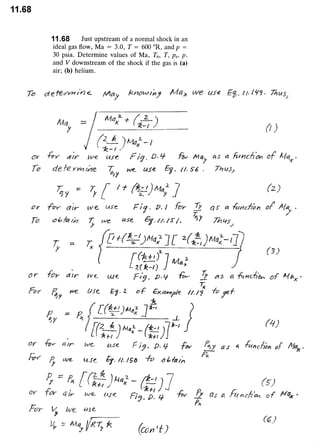 11.68
11.68 Just upstream of a normal shock in an
ideal gas flow, Ma = 3.0, T = 600 °R, and p =
30 psia. Determine values of Ma, T₀, T, p₀, p,
and V downstream of the shock if the gas is (a)
air; (b) helium.
To determine Ma_y knowing Ma_x we use Eq. 11.149. Thus,
Ma_y = √( (Ma_x² + (2/(k-1))) / ((2k/(k-1)) Ma_x² - 1) ) (1)
or for air we use Fig. D.4 for Ma_y as a function of Ma_x.
To determine T_0,y we use Eq. 11.56. Thus,
T_0,y = T_y [ 1 + ((k-1)/2) Ma_y² ] (2)
or for air we use Fig. D.1 for T_y/T_0,y as a function of Ma_y.
To obtain T_y we use Eq. 11.151. Thus,
T_y = T_x { [1+((k-1)/2)Ma_x²][2(k/(k-1))Ma_x²-1] / ( [(k+1)²/(2(k-1))] Ma_x² ) } (3)
or for air we use Fig. D.4 for T_y/T_x as a function of Ma_x.
For p_0,y we use Eq. 2 of Example 11.19 to get
(4)
or for air we use Fig. D.4 for p_0,y/p_x as a function of Ma_x.
For p_y we use Eq. 11.150 to obtain
p_y = p_x [ (2k/(k+1)) Ma_x² - ((k-1)/(k+1)) ] (5)
or for air we use Fig. D.4 for p_y/p_x as a function of Ma_x.
For V_y we use
V_y = Ma_y √(RT_y k) (6)
(con't)